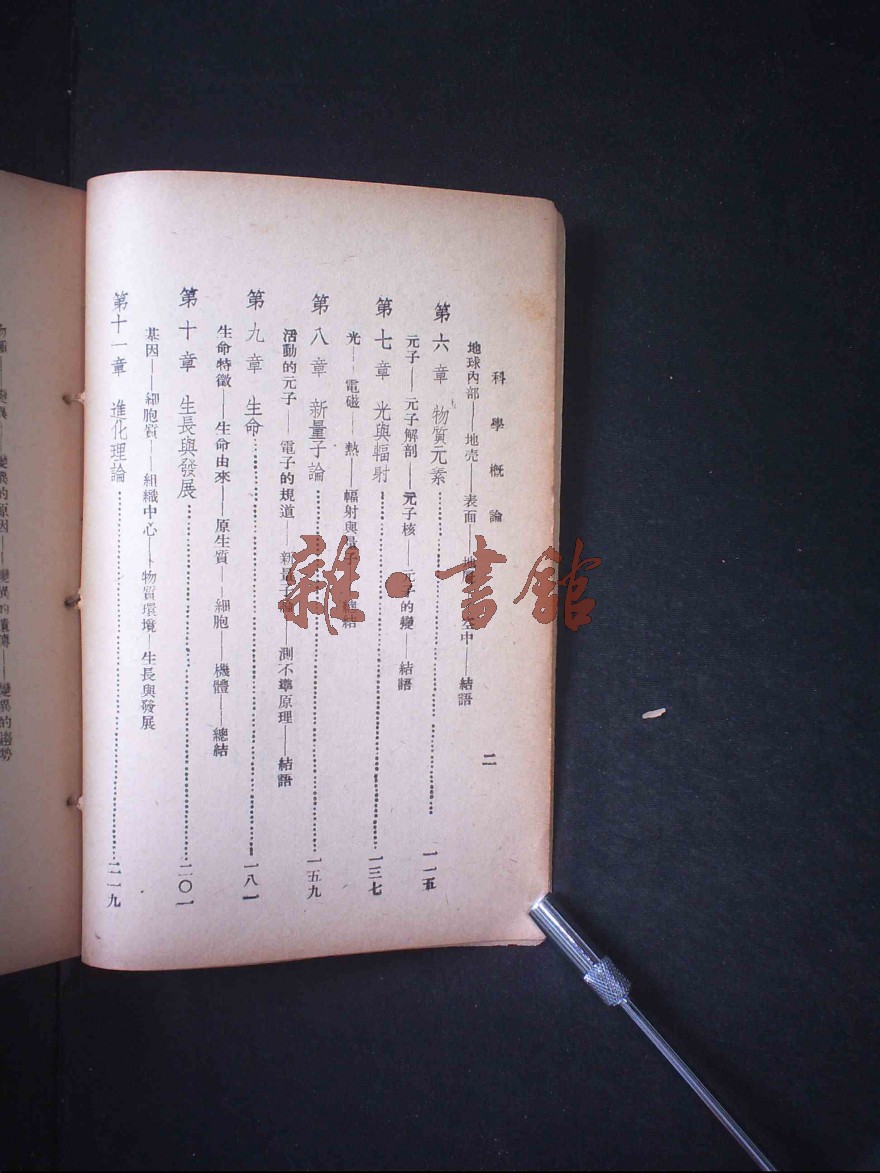 科學概論
二
地球內部——地壳——表面——地——空中——結語
第六章 物質元素……一一五
元子——元子解剖——元子核——元子的變——結語
第七章 光與輻射……一三七
光——電磁——熱——輻射與量子——總結
第八章 新量子論……一五九
活動的元子——電子的規道——新量子論——測不準原理——結語
第九章 生命……一八一
生命特徵——生命由來——原生質——細胞——機體——總結
第十章 生長與發展……二〇一
基因——細胞質——組織中心——物質環境——生長與發展
第十一章 進化理論……二一九
變異的原因——變異的遺傳——變異的趨勢
雜·書館